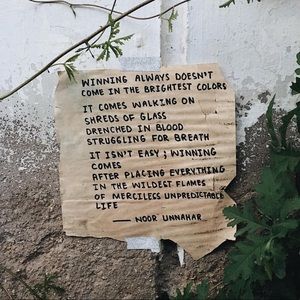 WINNING ALWAYS DOESN'T
COME IN THE BRIGHTEST COLORS
IT COMES WALKING ON
SHREDS OF GLASS
DRENCHED IN BLOOD
STRUGGLING FOR BREATH
IT ISN'T EASY ; WINNING
COMES
AFTER PLACING EVERYTHING
IN THE WILDEST FLAMES
OF MERCILESS UNPREDICTABLE
LIFE
— NOOR UNNAHAR